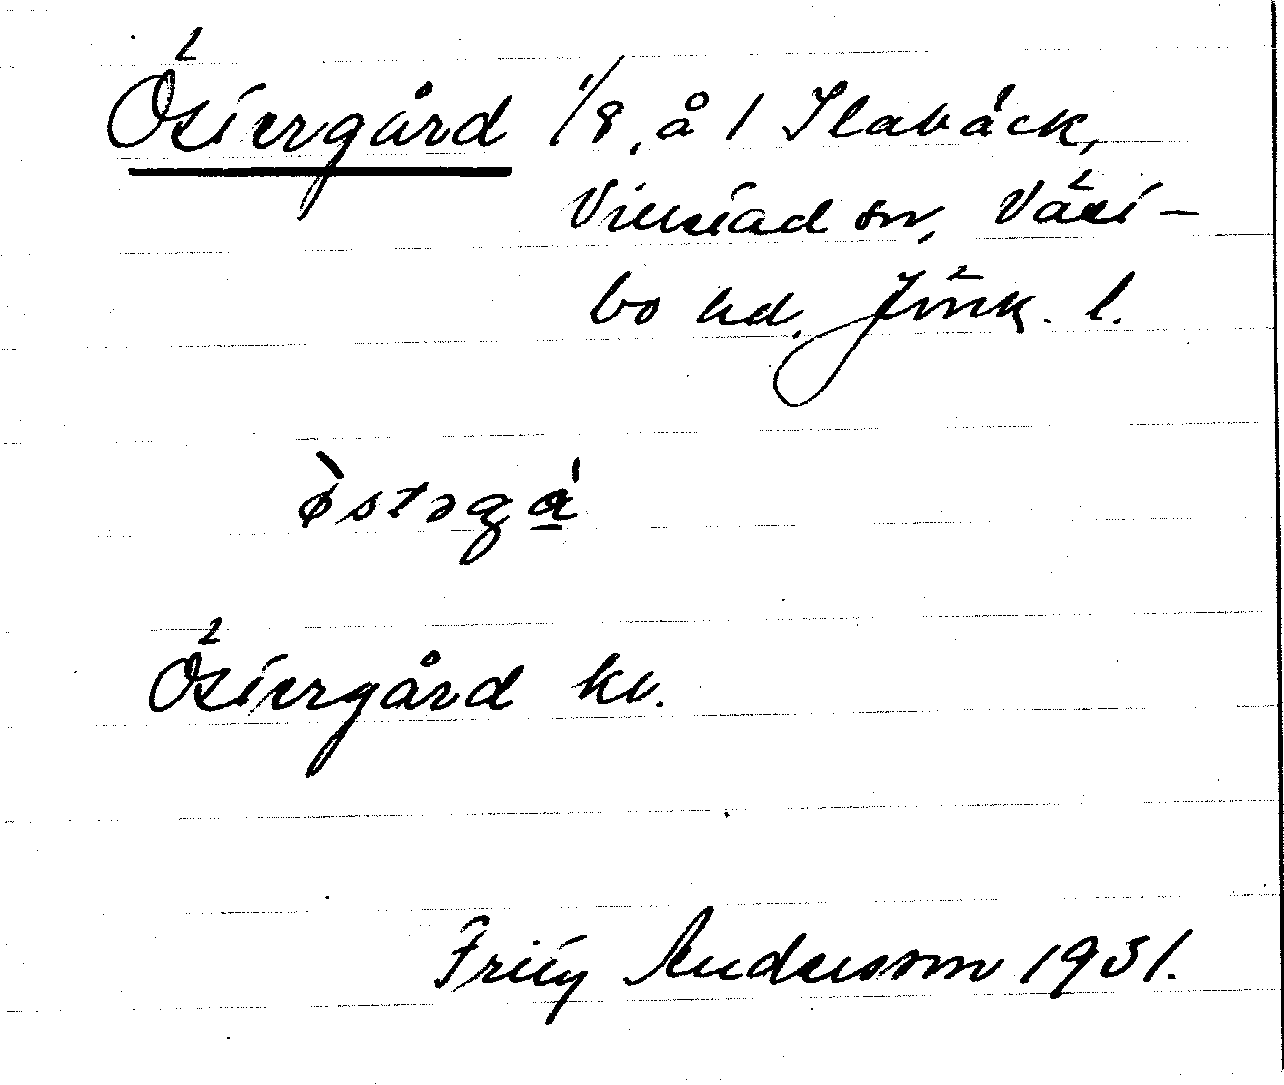 Östergård 1/8, å 1 Slabäck,
Vinstad sn, Väst-
bo hd. Jönk. l.
ø̀stəgá̱
Östergård kv.
Fritz Andersson 1931.